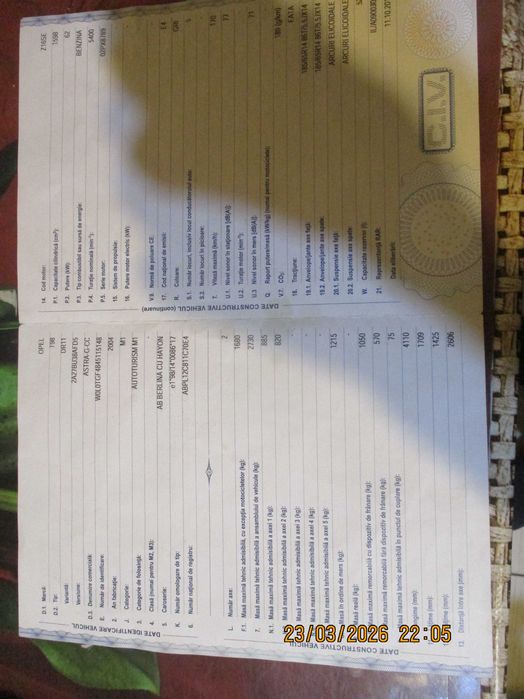 DATE IDENTIFICARE VEHICUL
D.1. Marcă: OPEL
D.2. Tip: T98
Variantă: DR11
Versiune: 2A27BU38AFD5
D.3. Denumire comercială: ASTRA-G-CC
E. Număr de identificare: W0L0TGF4845115148
2. An fabricaţie: 2004
J. Categorie: M1
3. Categorie de folosinţă: AUTOTURISM M1
4. Clasă (numai pentru M2, M3): -
5. Caroserie: AB BERLINA CU HAYON
K. Număr omologare de tip: e1*98/14*0086*17
6. Număr de registru: ABPL12CB11C20E4
DATE CONSTRUCTIVE VEHICUL
L. Număr axe: 2
F.1. Masă maximă tehnic admisibilă, cu excepţia motocicletelor (kg): 1680
7. Masă maximă tehnic admisibilă a ansamblului de vehicule (kg): 2730
N.1. Masă maximă tehnic admisibilă a axei 1 (kg): 885
Masă maximă tehnic admisibilă a axei 2 (kg): 820
Masă maximă tehnic admisibilă a axei 3 (kg): -
Masă maximă tehnic admisibilă a axei 4 (kg): -
Masă maximă tehnic admisibilă a axei 5 (kg): -
Masă în ordine de mers (kg): 1215
Masă maximă remorcabilă cu dispozitiv de frânare (kg): 1050
Masă maximă remorcabilă fără dispozitiv de frânare (kg): 570
Masă maximă tehnic admisibilă în punctul de cuplare (kg): 75
4110
1709
1425
12. Distanţă între axe (mm): 2606
DATE CONSTRUCTIVE VEHICUL (continuare)
14. Cod motor: Z16SE
P.1. Capacitate cilindrică (cm³): 1598
P.2. Putere (kW): 62
P.3. Tip combustibil sau sursă de energie: BENZINA
P.4. Turaţie nominală (min⁻¹): 5400
P.5. Serie motor: 02PX8789
15. Sistem de propulsie: -
16. Putere motor electric (kW): -
V.9. Normă de poluare CE: -
17. Cod naţional de emisii: E4
R. Culoare: GRI
S.1. Număr locuri, inclusiv locul conducătorului auto: 5
S.2. Număr locuri în picioare: -
T. Viteză maximă (km/h): 170
U.1. Nivel sonor în staţionare [dB(A)]: 77
U.2. Turaţie motor (min⁻¹):
U.3. Nivel sonor în mers [dB(A)]: 71
Q. Raport putere/masă (kW/kg) (numai pentru motociclete): -
V.7. CO₂: 189 (g/km)
18. Tracţiune: FATA
19.1. Anvelope/jante axe faţă: 185/65R14 86T/5.5JX14
19.2. Anvelope/jante axe spate: 185/65R14 86T/5.5JX14
20.1. Suspensie axe faţă: ARCURI ELICOIDALE
20.2. Suspensie axe spate: ARCURI ELICOIDALE
W. Capacitate rezervor (l): 52
21. Reprezentanţă RAR:
Data eliberării:
C.I.V.
23/03/2026 22:05